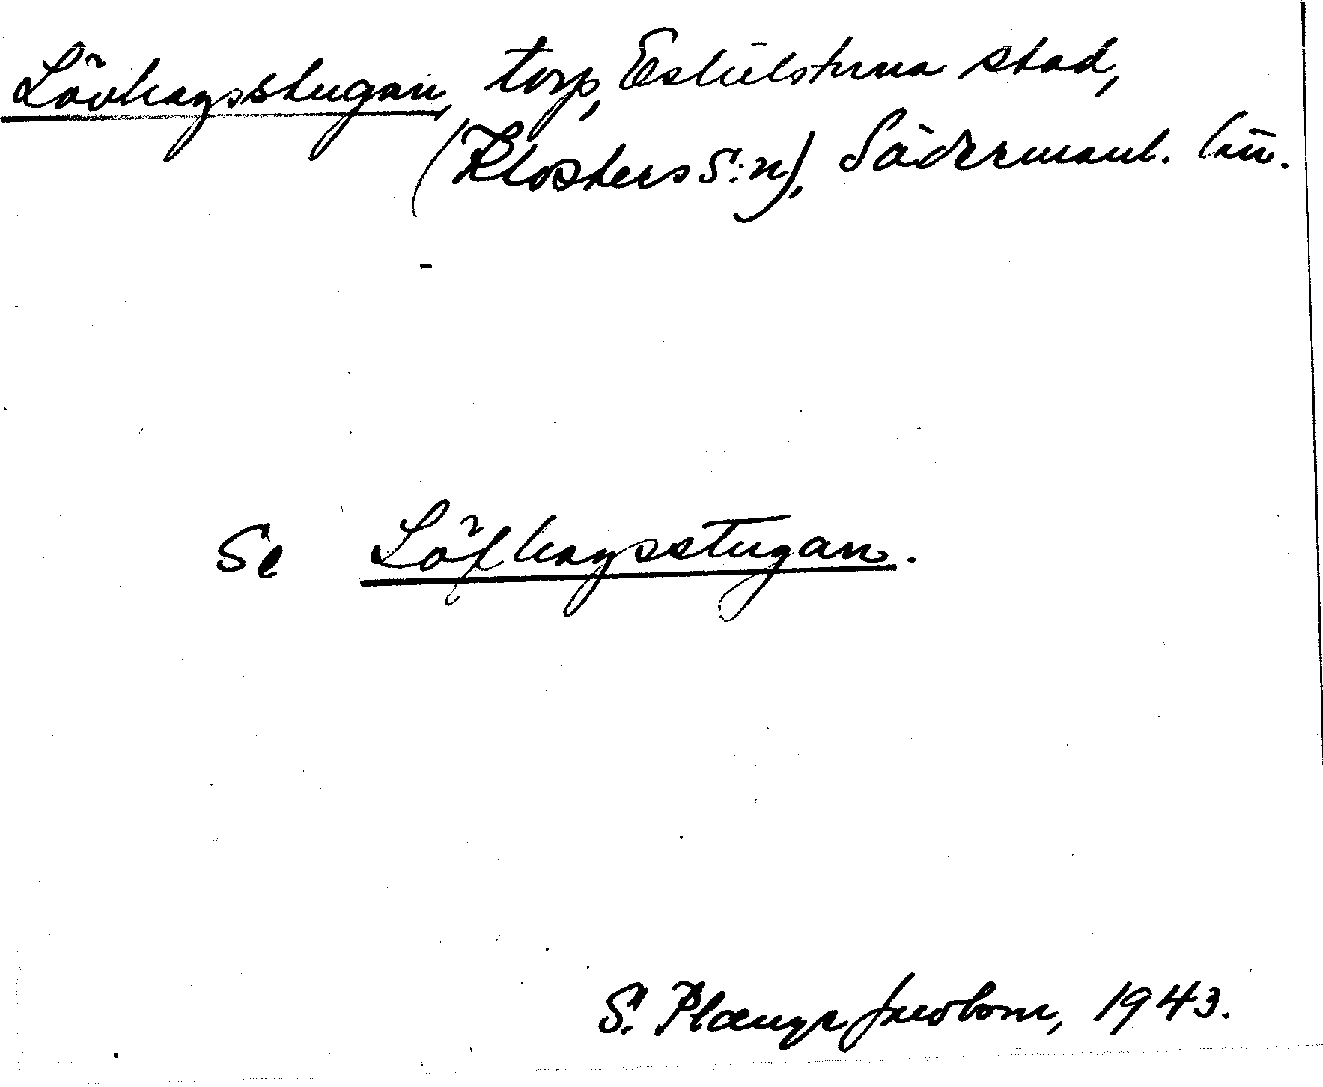 Lövhagsstugan, torp, Eskilstuna stad,
(Klosters S:n), Södermanl. län.
Se Löfhagsstugan.
S. Plænge Jacobson, 1943.